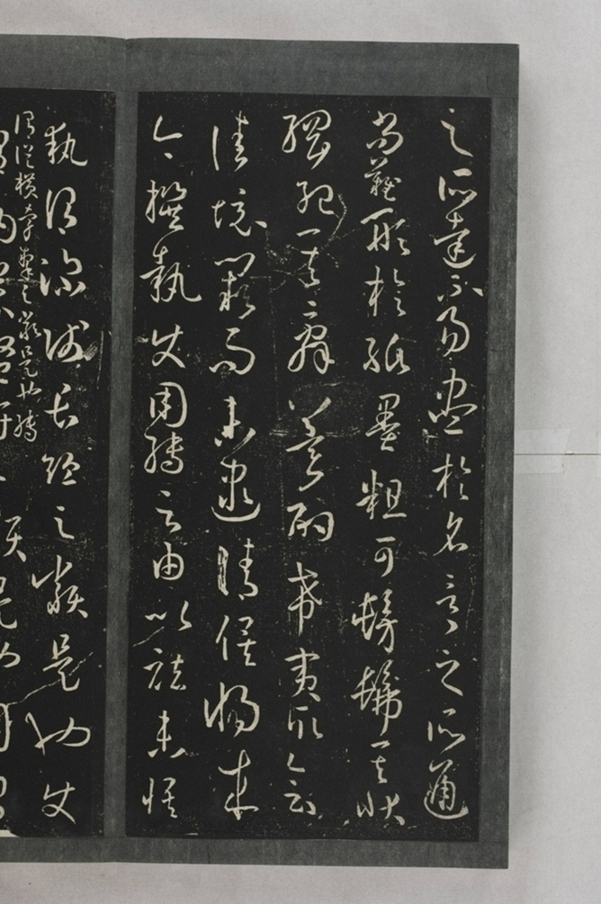 之所達不易盡於名言言之所通
尚難形於紙墨粗可髣髴其狀
綱紀其辭冀酌希夷取會
佳境闕而未逮請俟將來
今撰執使用轉之由以祛未悟
執謂深淺長短之類是也使
謂縱橫牽掣之類是也轉